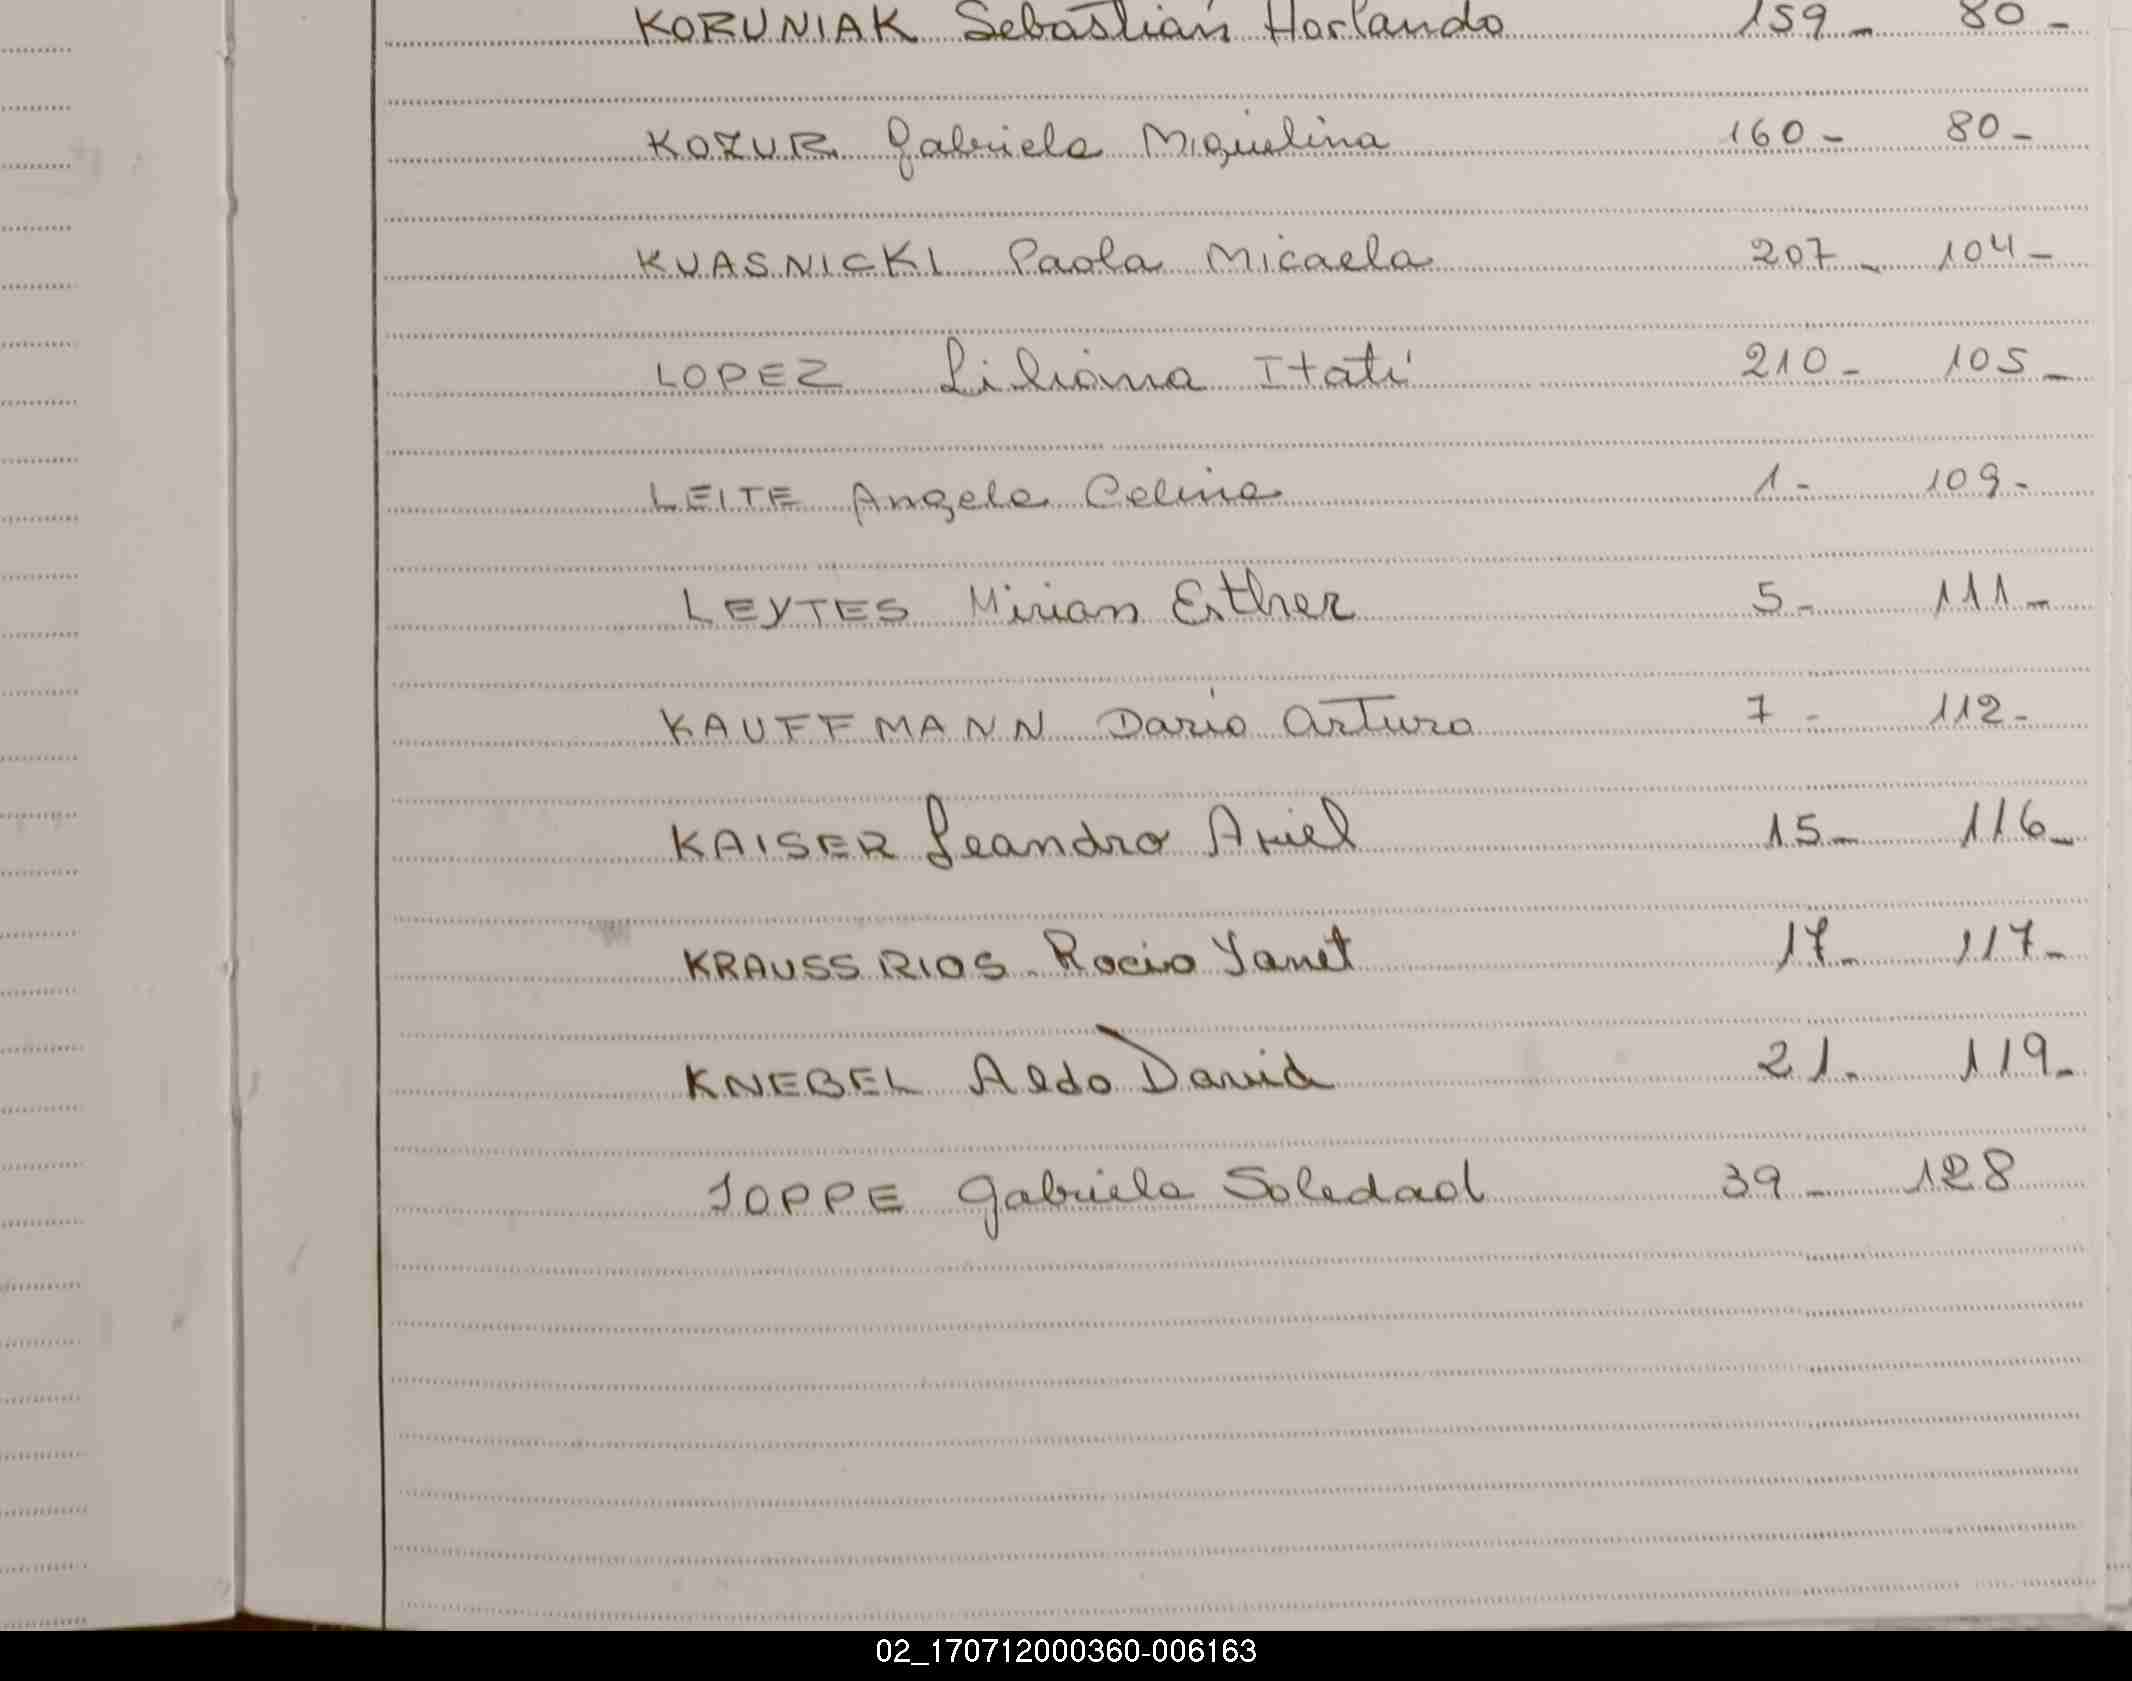 KORUNIAK Sebastián Horlando 159- 80-
KOZUR Gabriela Miguelina 160- 80-
KUASNICKI Paola Micaela 207- 104-
LOPEZ Liliana Itatí 210- 105-
LEITE Angela Celina 1- 109-
LEYTES Mirian Esther 5- 111-
KAUFFMANN Darío Arturo 7- 112-
KAISER Leandro Ariel 15- 116-
KRAUSS RIOS Rocio Yanet 17- 117-
KNEBEL Aldo David 21- 119-
JOPPE Gabriela Soledad 39- 128
02_170712000360-006163